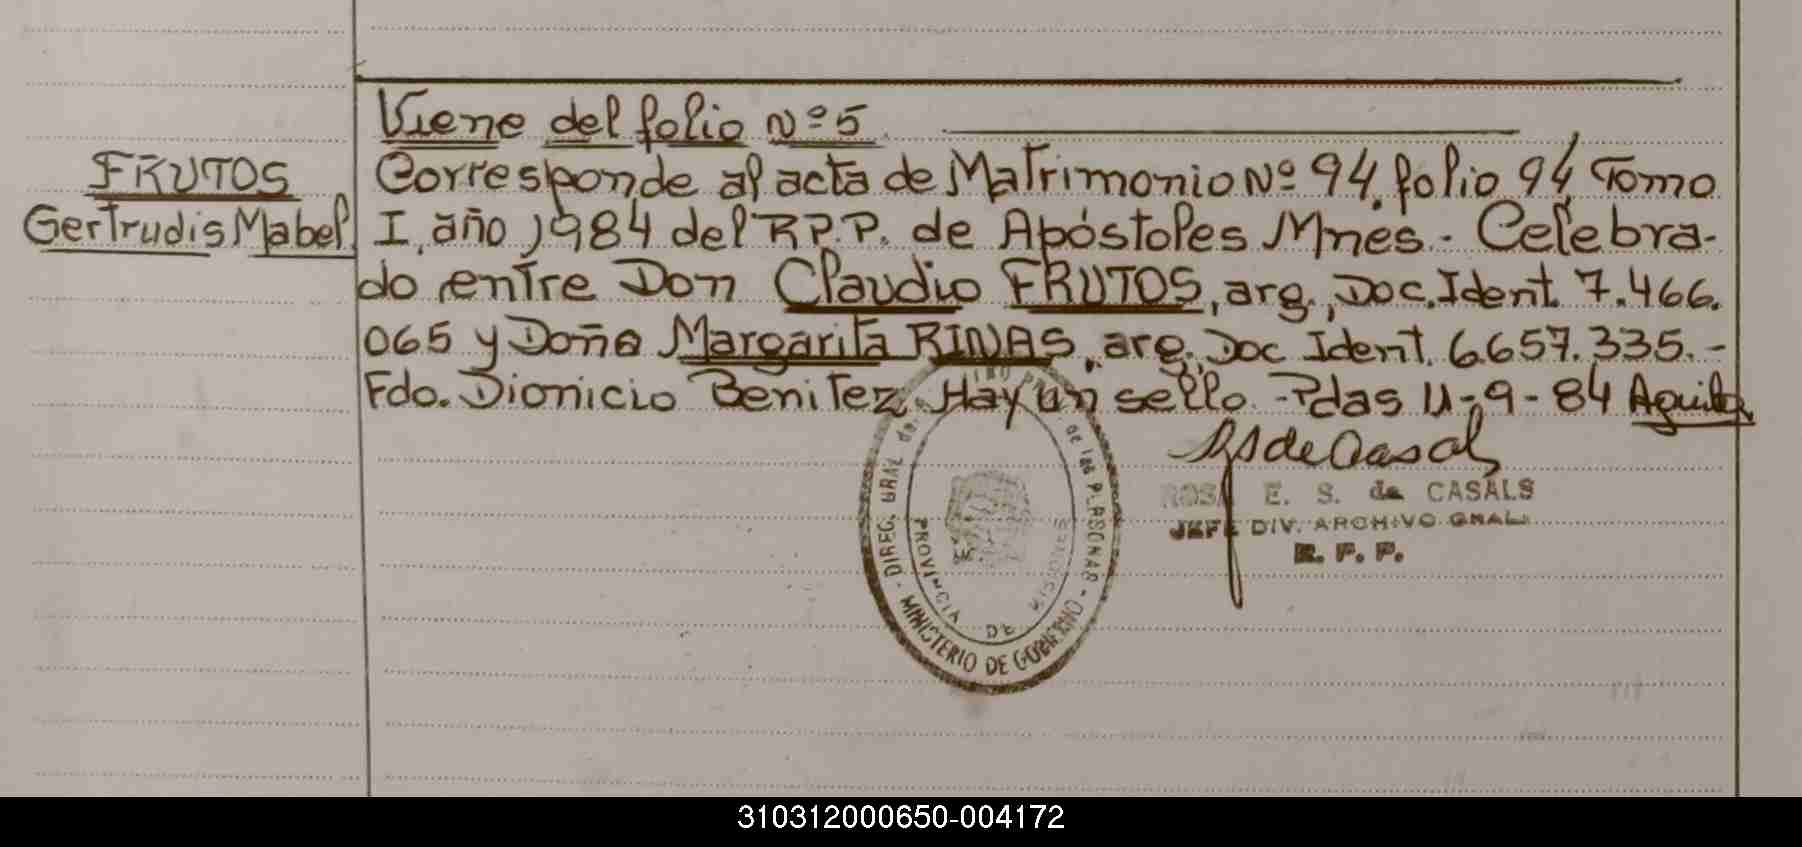 Viene del folio Nº 5
FRUTOS
Gertrudis Mabel.
Corresponde al acta de Matrimonio Nº 94, folio 94, Tomo
I, año 1984 del R.P.P. de Apóstoles Mnes. - Celebra-
do entre Don Claudio FRUTOS, arg., Doc. Ident. 7.466.
065 y Doña Margarita RINAS, arg. Doc Ident. 6.657.335. -
Fdo. Dionicio Benitez. Hay un sello. - Pdas 11-9-84
DIREC. GRAL de las PERSONAS - MINISTERIO DE GOBIERNO -
PROVINCIA DE MISIONES
ROSA E. S. de CASALS
JEFE DIV. ARCHIVO GRAL.
R. P. P.
310312000650-004172